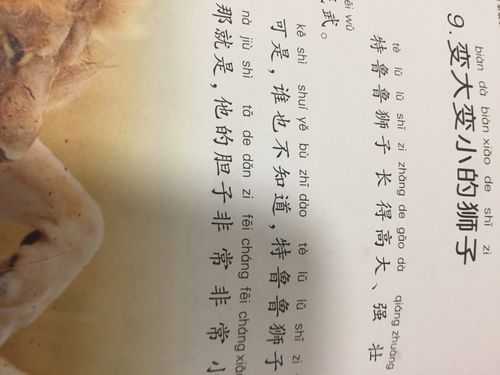 biàn dà biàn xiǎo de shī zi
9.变大变小的狮子
tè lǔ lǔ shī zi zhǎng de gāo dà qiáng zhuàng
特鲁鲁狮子长得高大、强壮
wǔ
武。
kě shì shuí yě bù zhī dào tè lǔ lǔ shī zi
可是，谁也不知道，特鲁鲁狮子
nà jiù shì tā de dǎn zi fēi cháng fēi cháng xiǎo
那就是，他的胆子非常非常小